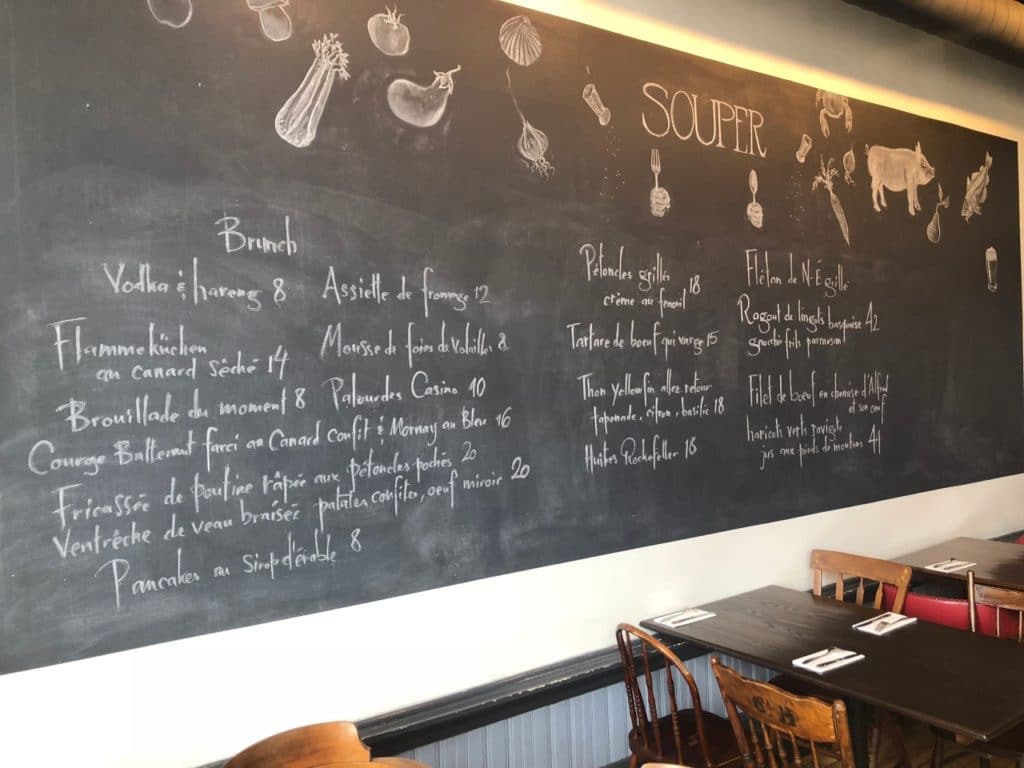 SOUPER
Brunch
Vodka & hareng 8
Flammeküchen
au canard séché 14
Brouillade du moment 8
Assiette de fromage 12
Mousse de foies de volailles 8
Palourdes Casino 10
Courge Butternut farci au Canard confit & Mornay au Bleu 16
Fricassée de poutine râpée aux pétoncles pochés 20
Ventrèche de veau braisée patates confites, oeuf miroir 20
Pancakes au Sirop d'érable 8
Pétoncles grillés 18
crème au fenouil
Tartare de boeuf qui varge 15
Thon yellowfin allez retour
tapenade, citron, basilic 18
Huitres Rockefeller 18
Flétan de N-É grillé
Ragout de lingots basquaise 42
frits parmesan
Filet de boeuf en chemise d'Alfred
et son oeuf
haricots verts ravigote
jus aux pieds de moutons 41